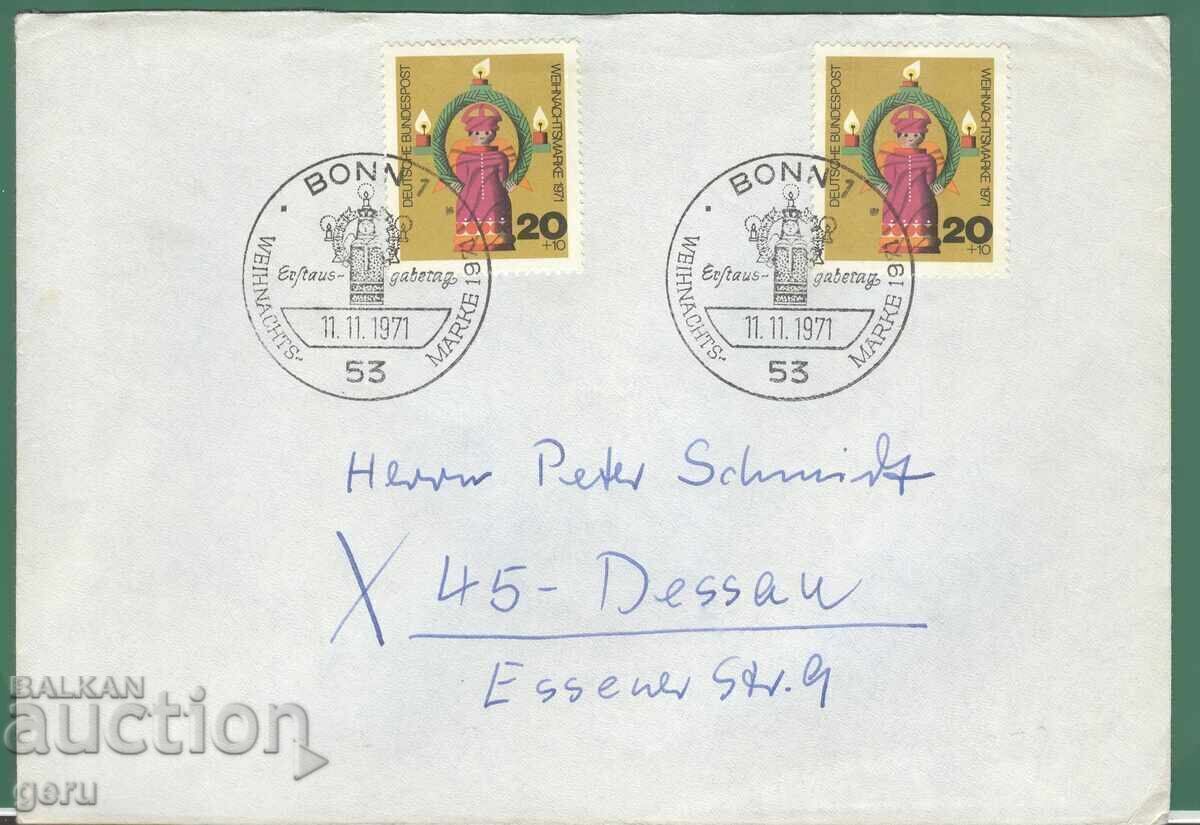 DEUTSCHE BUNDESPOST
WEIHNACHTSMARKE 1971
20
+10
DEUTSCHE BUNDESPOST
WEIHNACHTSMARKE 1971
20
+10
BONN 1
Erstaus- gabetag
11.11.1971
53
WEIHNACHTS- MARKE 1971
BONN 1
Erstaus- gabetag
11.11.1971
53
WEIHNACHTS- MARKE 1971
Herrn Peter Schmidt
X 45-Dessau
Essener Str. 9
BALKAN
auction
geru